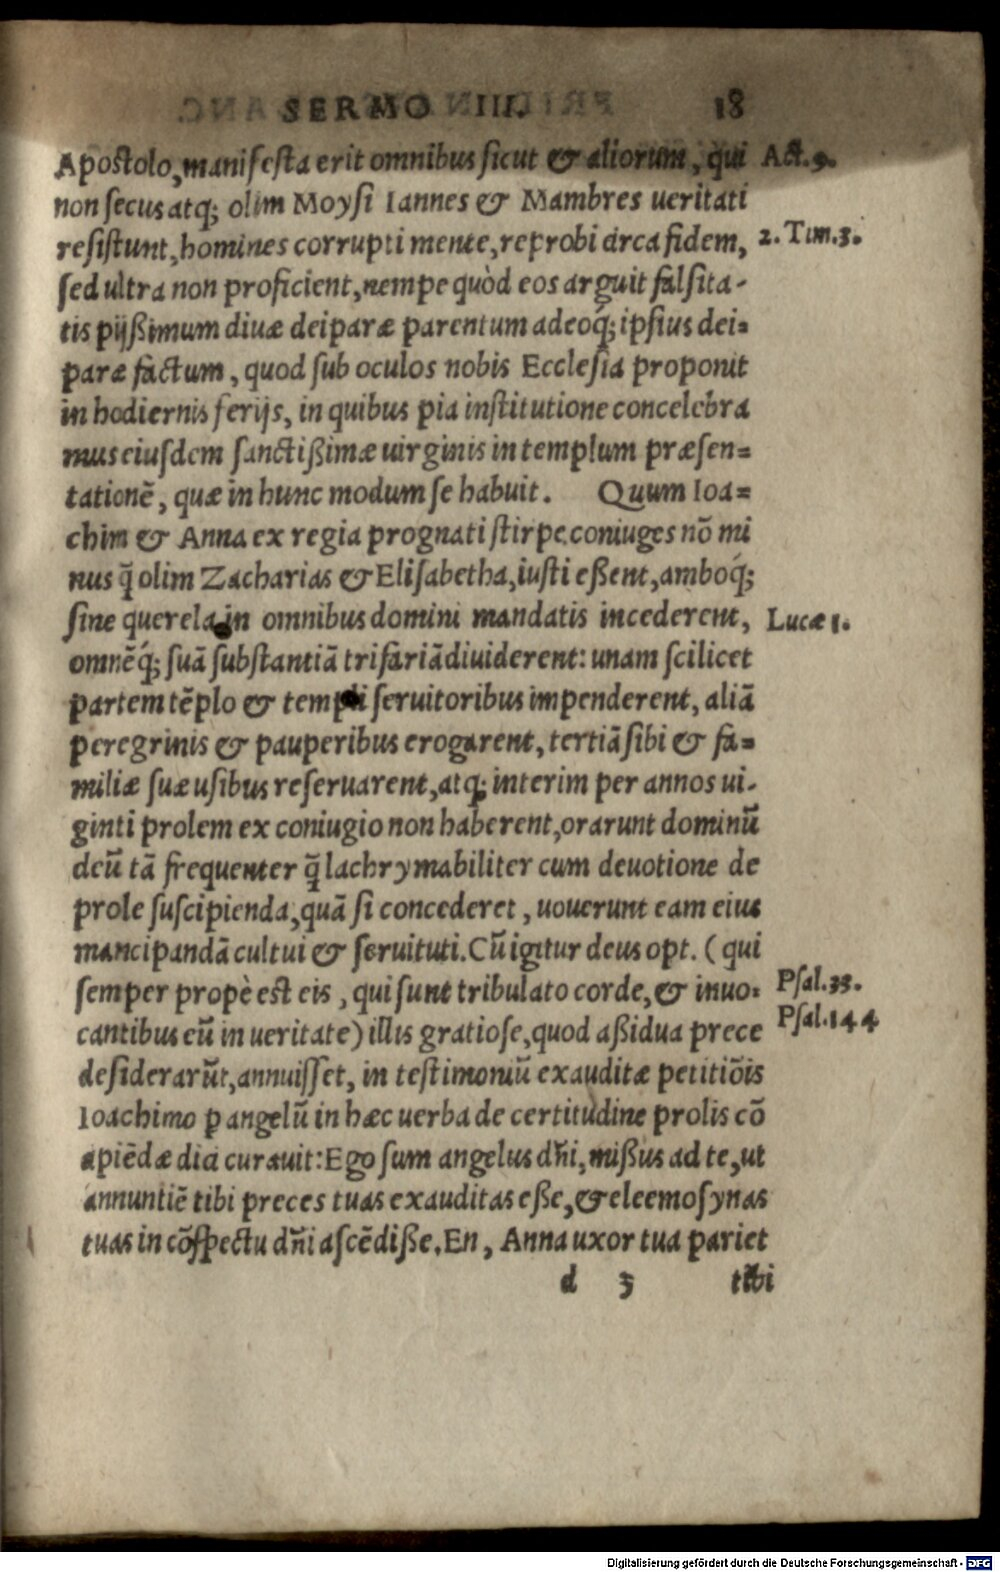 SERMO IIII. 18
Apostolo, manifesta erit omnibus sicut & aliorum, qui Act. 9.
non secus atq; olim Moysi Iannes & Mambres ueritati
resistunt, homines corrupti mente, reprobi circa fidem, 2. Tim. 3.
sed ultra non proficient, nempe quòd eos arguit falsita-
tis pijßimum diuæ deiparæ parentum adeoq́; ipsius dei=
paræ factum, quod sub oculos nobis Ecclesia proponit
in hodiernis ferijs, in quibus pia institutione concelebra
mus eiusdem sanctißimæ uirginis in templum præsen=
tationẽ, quæ in hunc modum se habuit. Quum Ioa=
chim & Anna ex regia prognati stirpe coniuges nõ mi
nus q̃ olim Zacharias & Elisabetha, iusti eßent, amboq́;
sine querela in omnibus domini mandatis incederent, Lucæ 1.
omnẽq́; suã substantiã trifariã diuiderent: unam scilicet
partem tẽplo & templi seruitoribus impenderent, aliã
peregrinis & pauperibus erogarent, tertiã sibi & fa=
miliæ suæ usibus reseruarent, atq; interim per annos ui-
ginti prolem ex coniugio non haberent, orarunt dominũ
deũ tã frequenter q̃ lachrymabiliter cum deuotione de
prole suscipienda, quã si concederet, uouerunt eam eius
mancipandã cultui & seruituti. Cũ igitur deus opt. (qui
semper propè est eis, qui sunt tribulato corde, & inuo= Psal. 33.
cantibus eũ in ueritate) illis gratiose, quod aßidua prece Psal. 144
desiderarũt, annuisset, in testimoniũ exauditæ petitiõis
Ioachimo ꝑ angelũ in hæc uerba de certitudine prolis cõ
cipiẽdæ dici curauit: Ego sum angelus dñi, mißus ad te, ut
annuntiẽ tibi preces tuas exauditas eße, & eleemosynas
tuas in cõspectu dñi ascẽdiße. En, Anna uxor tua pariet
d 3 tibi
Digitalisierung gefördert durch die Deutsche Forschungsgemeinschaft - DFG